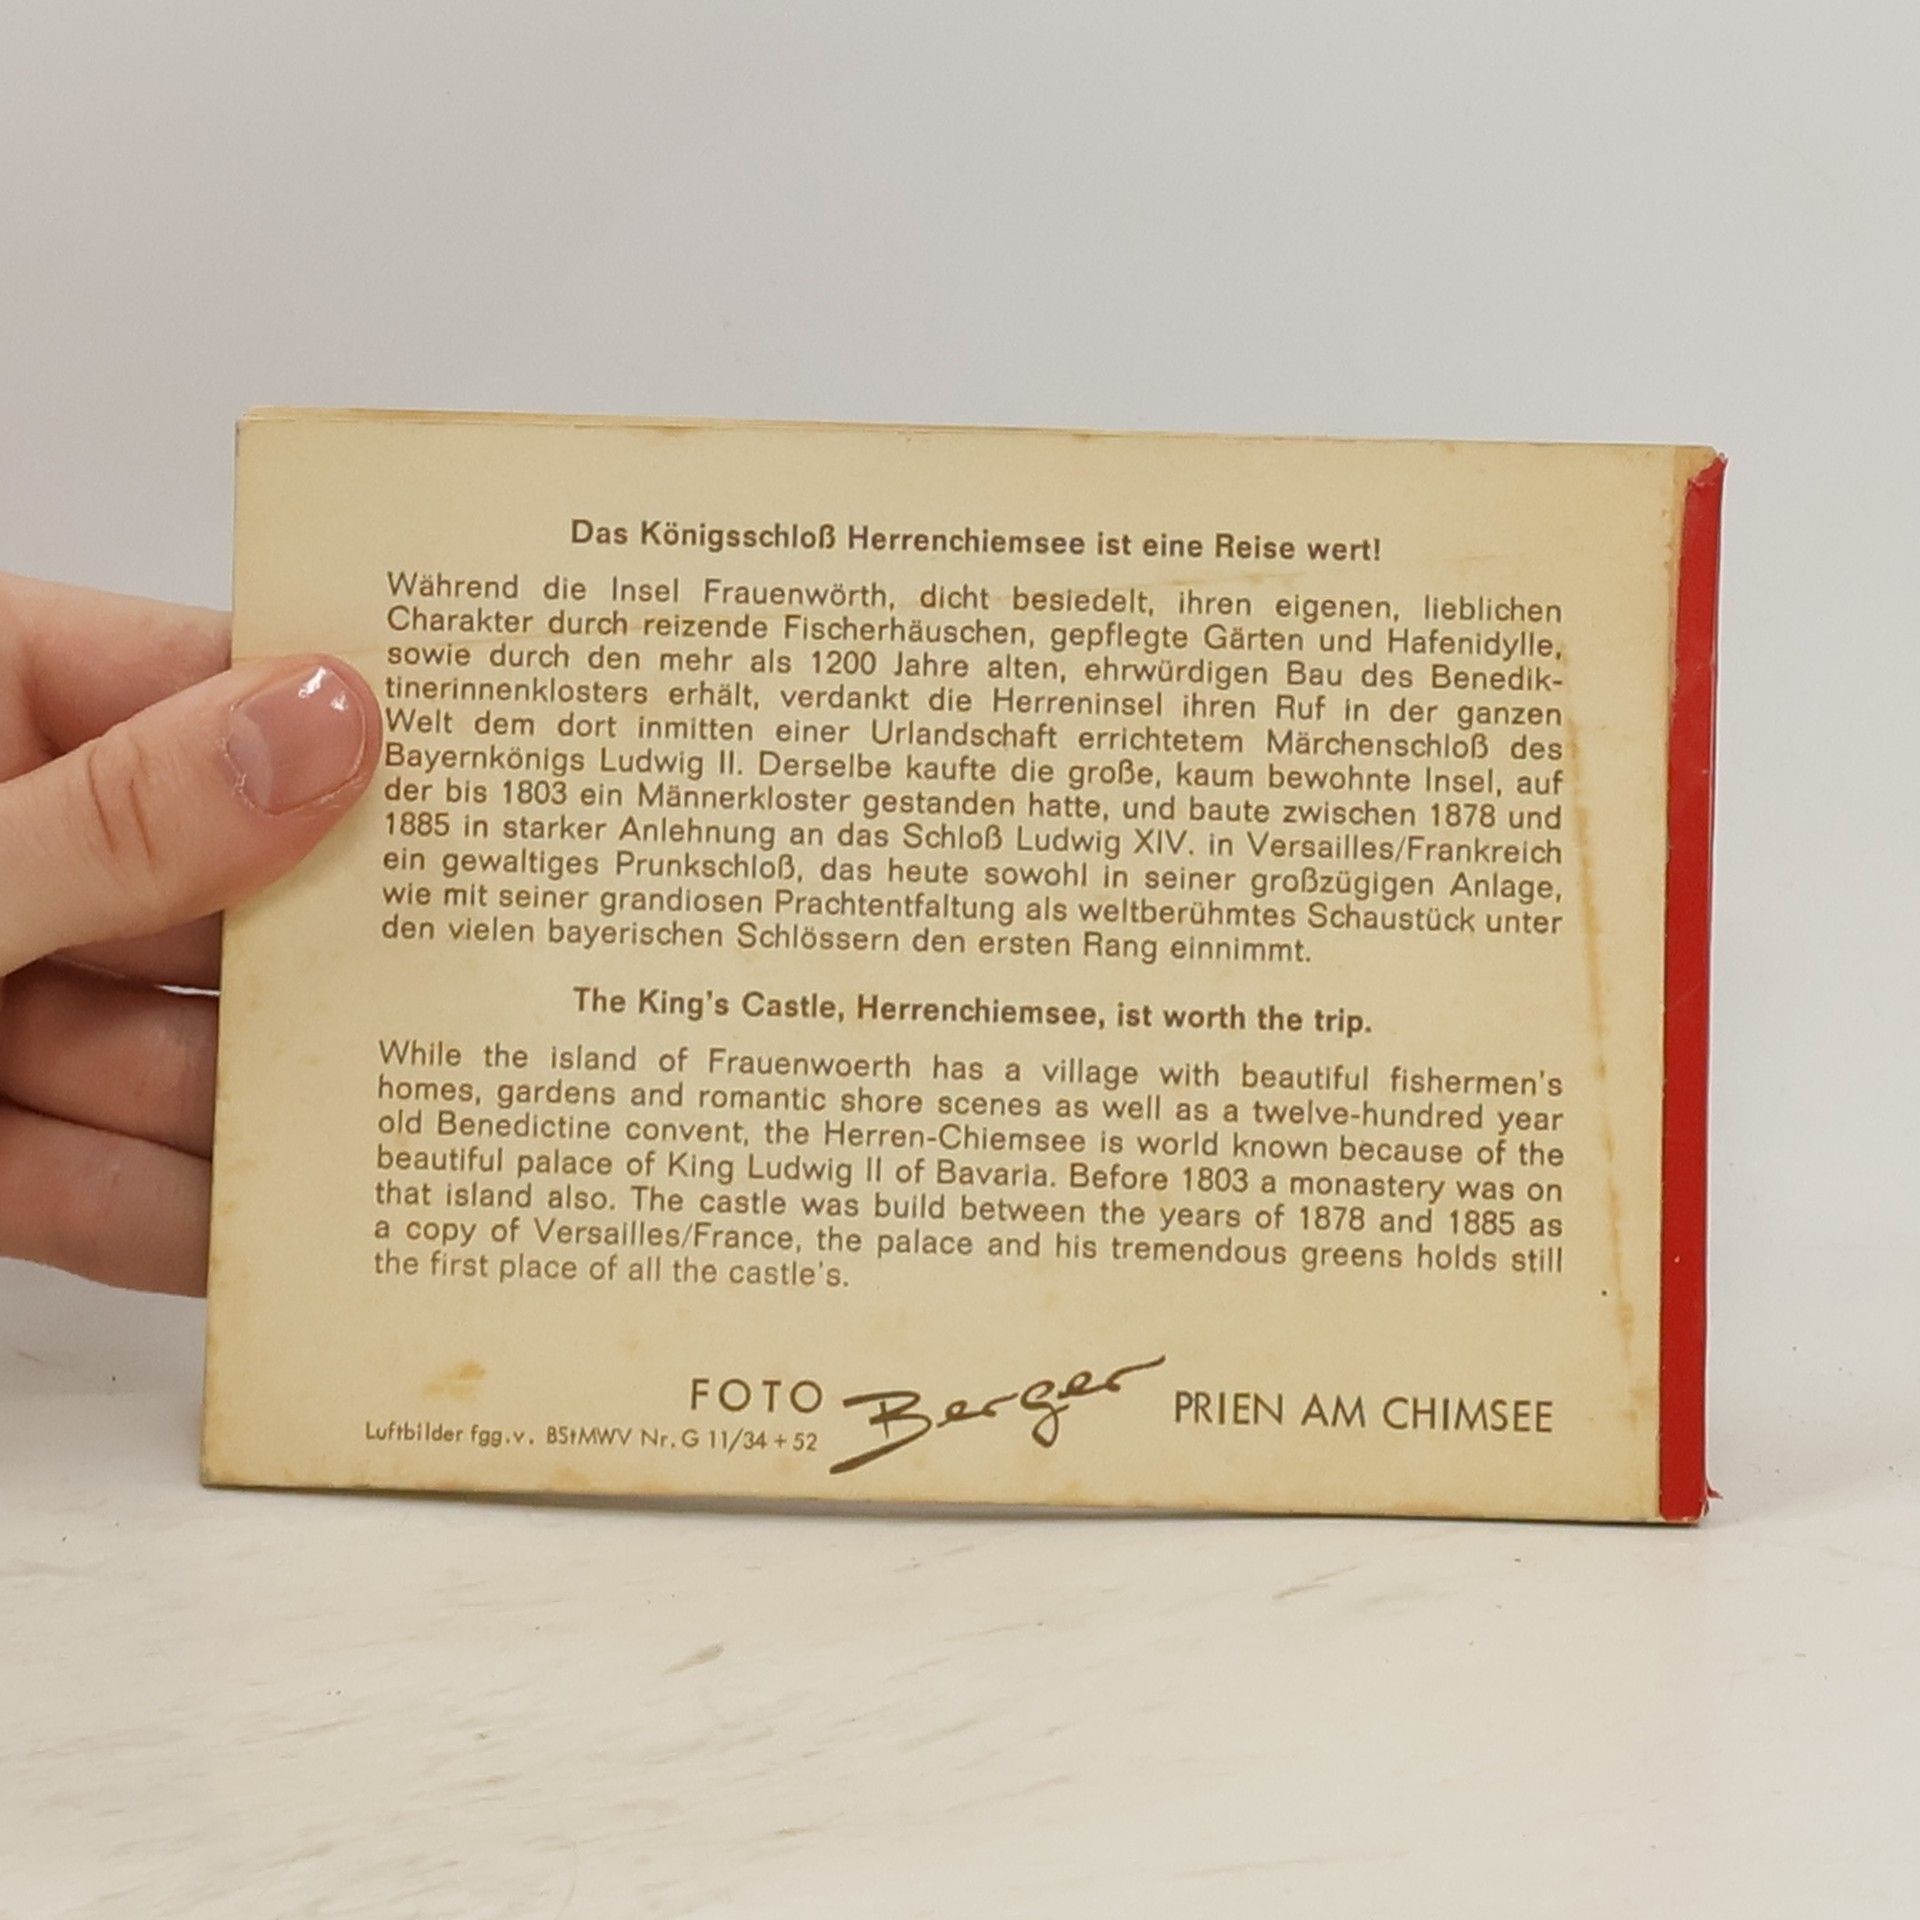 Das Königsschloß Herrenchiemsee ist eine Reise wert!
Während die Insel Frauenwörth, dicht besiedelt, ihren eigenen, lieblichen
Charakter durch reizende Fischerhäuschen, gepflegte Gärten und Hafenidylle,
sowie durch den mehr als 1200 Jahre alten, ehrwürdigen Bau des Benedik-
tinerinnenklosters erhält, verdankt die Herreninsel ihren Ruf in der ganzen
Welt dem dort inmitten einer Urlandschaft errichtetem Märchenschloß des
Bayernkönigs Ludwig II. Derselbe kaufte die große, kaum bewohnte Insel, auf
der bis 1803 ein Männerkloster gestanden hatte, und baute zwischen 1878 und
1885 in starker Anlehnung an das Schloß Ludwig XIV. in Versailles/Frankreich
ein gewaltiges Prunkschloß, das heute sowohl in seiner großzügigen Anlage,
wie mit seiner grandiosen Prachtentfaltung als weltberühmtes Schaustück unter
den vielen bayerischen Schlössern den ersten Rang einnimmt.
The King's Castle, Herrenchiemsee, ist worth the trip.
While the island of Frauenwoerth has a village with beautiful fishermen's
homes, gardens and romantic shore scenes as well as a twelve-hundred year
old Benedictine convent, the Herren-Chiemsee is world known because of the
beautiful palace of King Ludwig II of Bavaria. Before 1803 a monastery was on
that island also. The castle was build between the years of 1878 and 1885 as
a copy of Versailles/France, the palace and his tremendous greens holds still
the first place of all the castle's.
FOTO Berger PRIEN AM CHIMSEE
Luftbilder fgg.v. BStMWV Nr. G 11/34 + 52